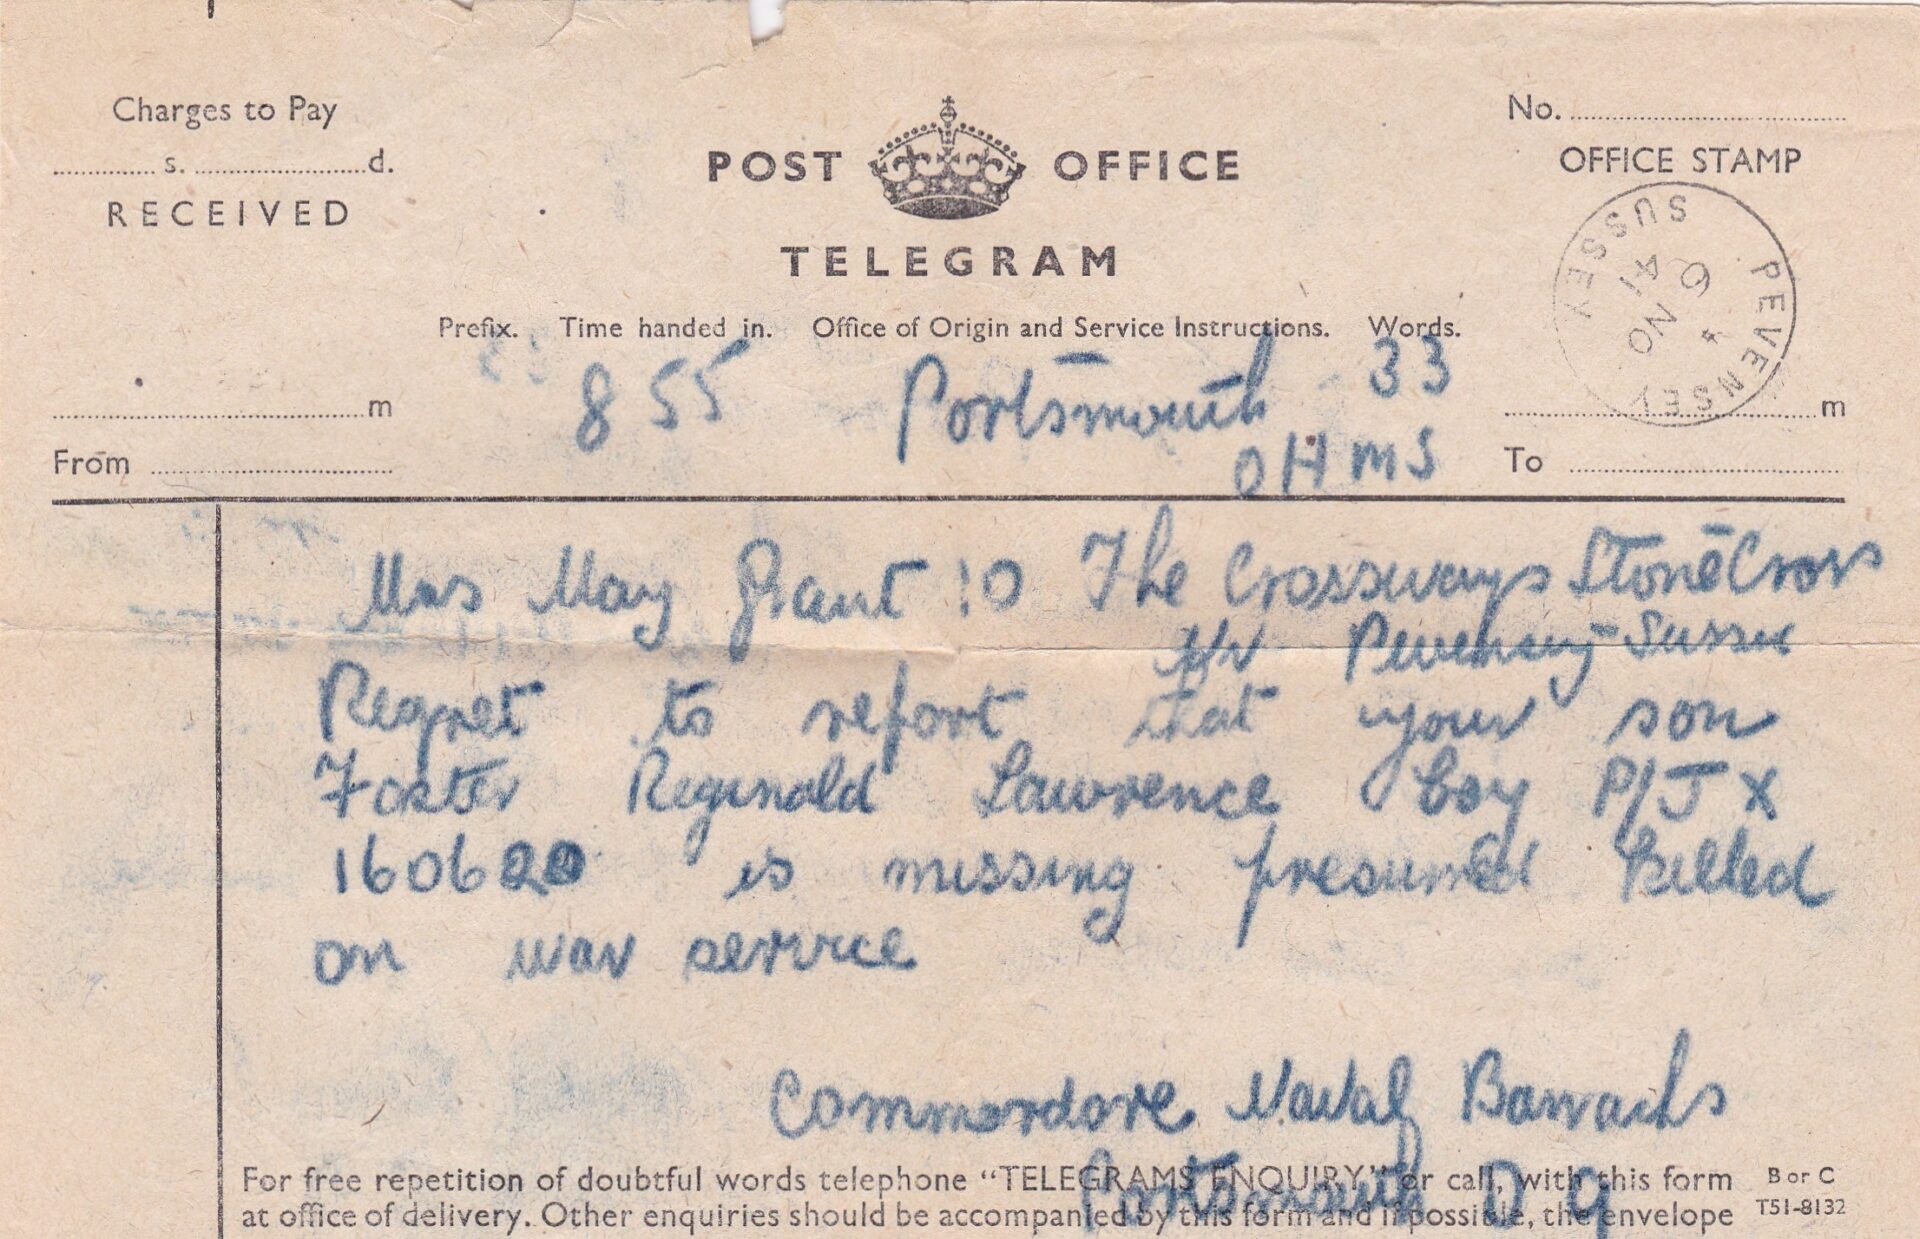 Charges to Pay
s. d.
RECEIVED
POST OFFICE
TELEGRAM
No.
OFFICE STAMP
PEVENSEY SUSSEX
6 NO
41
Prefix. Time handed in. Office of Origin and Service Instructions. Words.
8 55 Portsmouth 33
m
m
OHMS
From
To
Mrs May Grant 10 The Crossways Stone Cross
Nr Pevensey Sussex
Regret to report that your son
Foster Reginald Lawrence boy P/JX
160620 is missing presumed killed
on war service
Commordore Naval Barracks
Portsmouth
For free repetition of doubtful words telephone “TELEGRAMS ENQUIRY,” or call, with this form
at office of delivery. Other enquiries should be accompanied by this form and if possible, the envelope
B or C
T51-8132